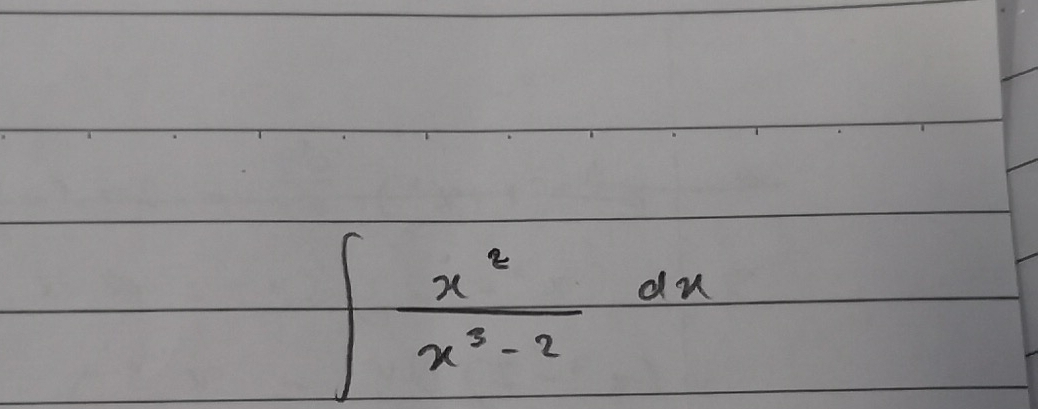 ∫ x² / (x³ - 2) dx